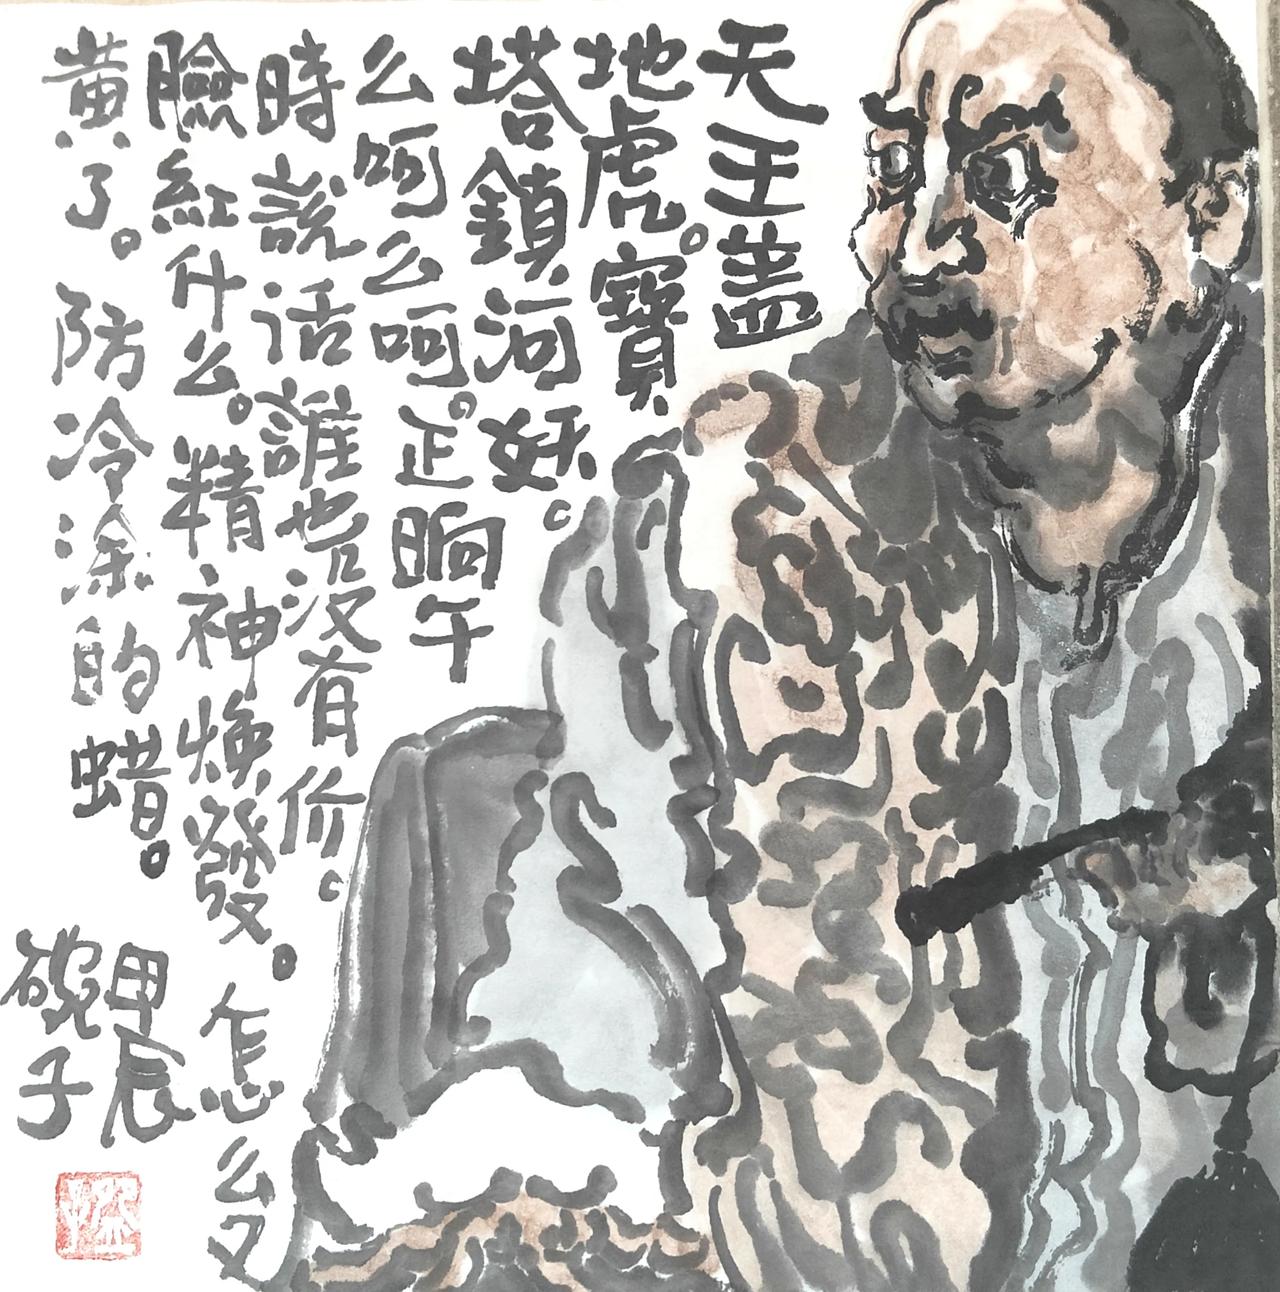 天王盖
地虎。寶
塔鎮河妖。
么呵么呵。正晌午
時説话誰也没有价。
臉紅什么。精神焕發。怎么又
黄了。防冷涂的蜡。
甲辰
碗子